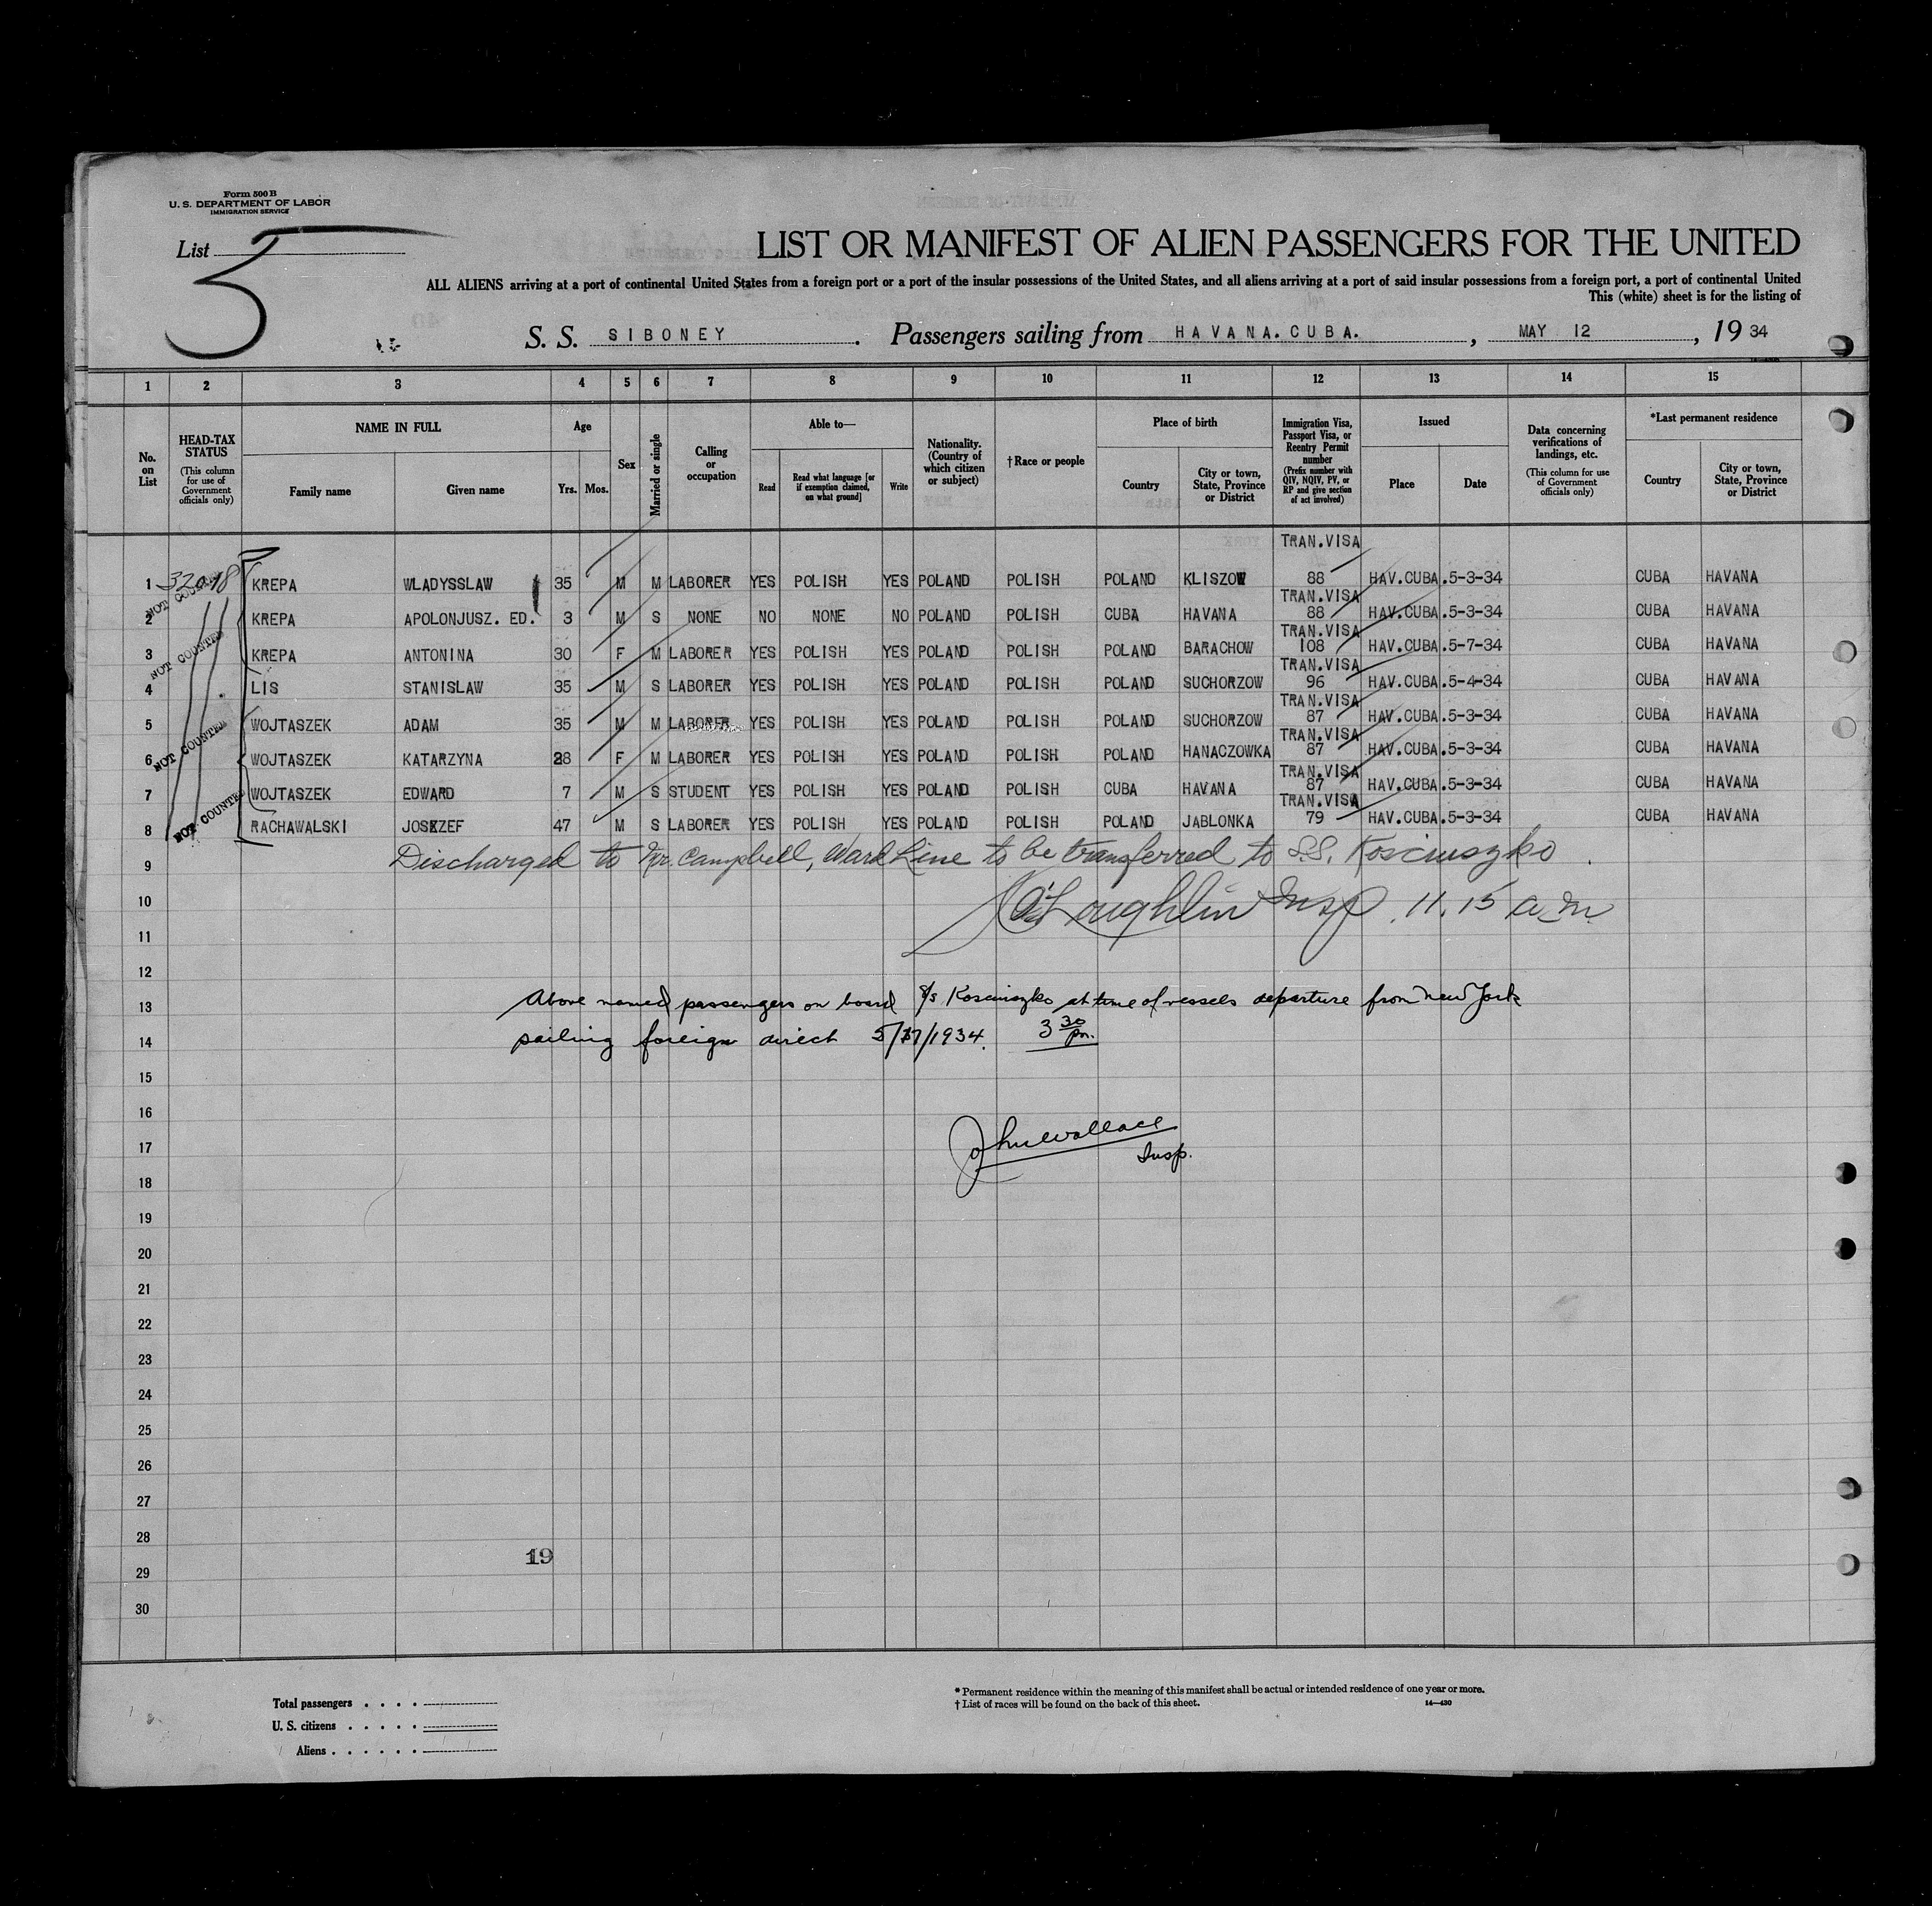 Form 500 B
U. S. DEPARTMENT OF LABOR
IMMIGRATION SERVICE
List 5
LIST OR MANIFEST OF ALIEN PASSENGERS FOR THE UNITED
ALL ALIENS arriving at a port of continental United States from a foreign port or a port of the insular possessions of the United States, and all aliens arriving at a port of said insular possessions from a foreign port, a port of continental United
This (white) sheet is for the listing of
S. S. SIBONEY. Passengers sailing from HAVANA.CUBA., MAY 12, 19 34
1 2 3 4 5 6 7 8 9 10 11 12 13 14 15
No. on List
HEAD-TAX STATUS (This column for use of Government officials only)
NAME IN FULL
Family name Given name
Age
Yrs. Mos.
Sex
Married or single
Calling or occupation
Able to—
Read
Read what language [or if exemption claimed, on what ground]
Write
Nationality. (Country of which citizen or subject)
†Race or people
Place of birth
Country
City or town, State, Province or District
Immigration Visa, Passport Visa, or Reentry Permit number (Prefix number with QIV, NQIV, PV, or RP and give section of act involved)
Issued
Place Date
Data concerning verifications of landings, etc. (This column for use of Government officials only)
*Last permanent residence
Country
City or town, State, Province or District
TRAN.VISA
1 KREPA WLADYSSLAW 35 M M LABORER YES POLISH YES POLAND POLISH POLAND KLISZOW 88 HAV.CUBA.5-3-34 CUBA HAVANA
NOT COUNTED
TRAN.VISA
2 KREPA APOLONJUSZ. ED. 3 M S NONE NO NONE NO POLAND POLISH CUBA HAVANA 88 HAV.CUBA.5-3-34 CUBA HAVANA
NOT COUNTED
TRAN.VISA
3 KREPA ANTONINA 30 F M LABORER YES POLISH YES POLAND POLISH POLAND BARACHOW 108 HAV.CUBA.5-7-34 CUBA HAVANA
TRAN.VISA
4 LIS STANISLAW 35 M S LABORER YES POLISH YES POLAND POLISH POLAND SUCHORZOW 96 HAV.CUBA.5-4-34 CUBA HAVANA
TRAN.VISA
5 WOJTASZEK ADAM 35 M M LABORER YES POLISH YES POLAND POLISH POLAND SUCHORZOW 87 HAV.CUBA.5-3-34 CUBA HAVANA
NOT COUNTED
TRAN.VISA
6 WOJTASZEK KATARZYNA 28 F M LABORER YES POLISH YES POLAND POLISH POLAND HANACZOWKA 87 HAV.CUBA.5-3-34 CUBA HAVANA
TRAN.VISA
7 WOJTASZEK EDWARD 7 M S STUDENT YES POLISH YES POLAND POLISH CUBA HAVANA 87 HAV.CUBA.5-3-34 CUBA HAVANA
NOT COUNTED
TRAN.VISA
8 RACHAWALSKI JOSEZEF 47 M S LABORER YES POLISH YES POLAND POLISH POLAND JABLONKA 79 HAV.CUBA.5-3-34 CUBA HAVANA
9 Discharged to Mr. Campbell, Ward Line to be transferred to S.S. Kosciuszko.
10 O'Loughlin Insp. 11.15 a.m.
11
12
13 Above named passengers on board s/s Kosciuszko at time of vessels departure from New York
14 sailing foreign direct 5/17/1934. 3 30 pm.
15
16
17 John Wallace
Insp.
18
19
20
21
22
23
24
25
26
27
28
19
29
30
Total passengers . . . .
U. S. citizens . . . . .
Aliens . . . . . .
* Permanent residence within the meaning of this manifest shall be actual or intended residence of one year or more.
† List of races will be found on the back of this sheet. 14—430